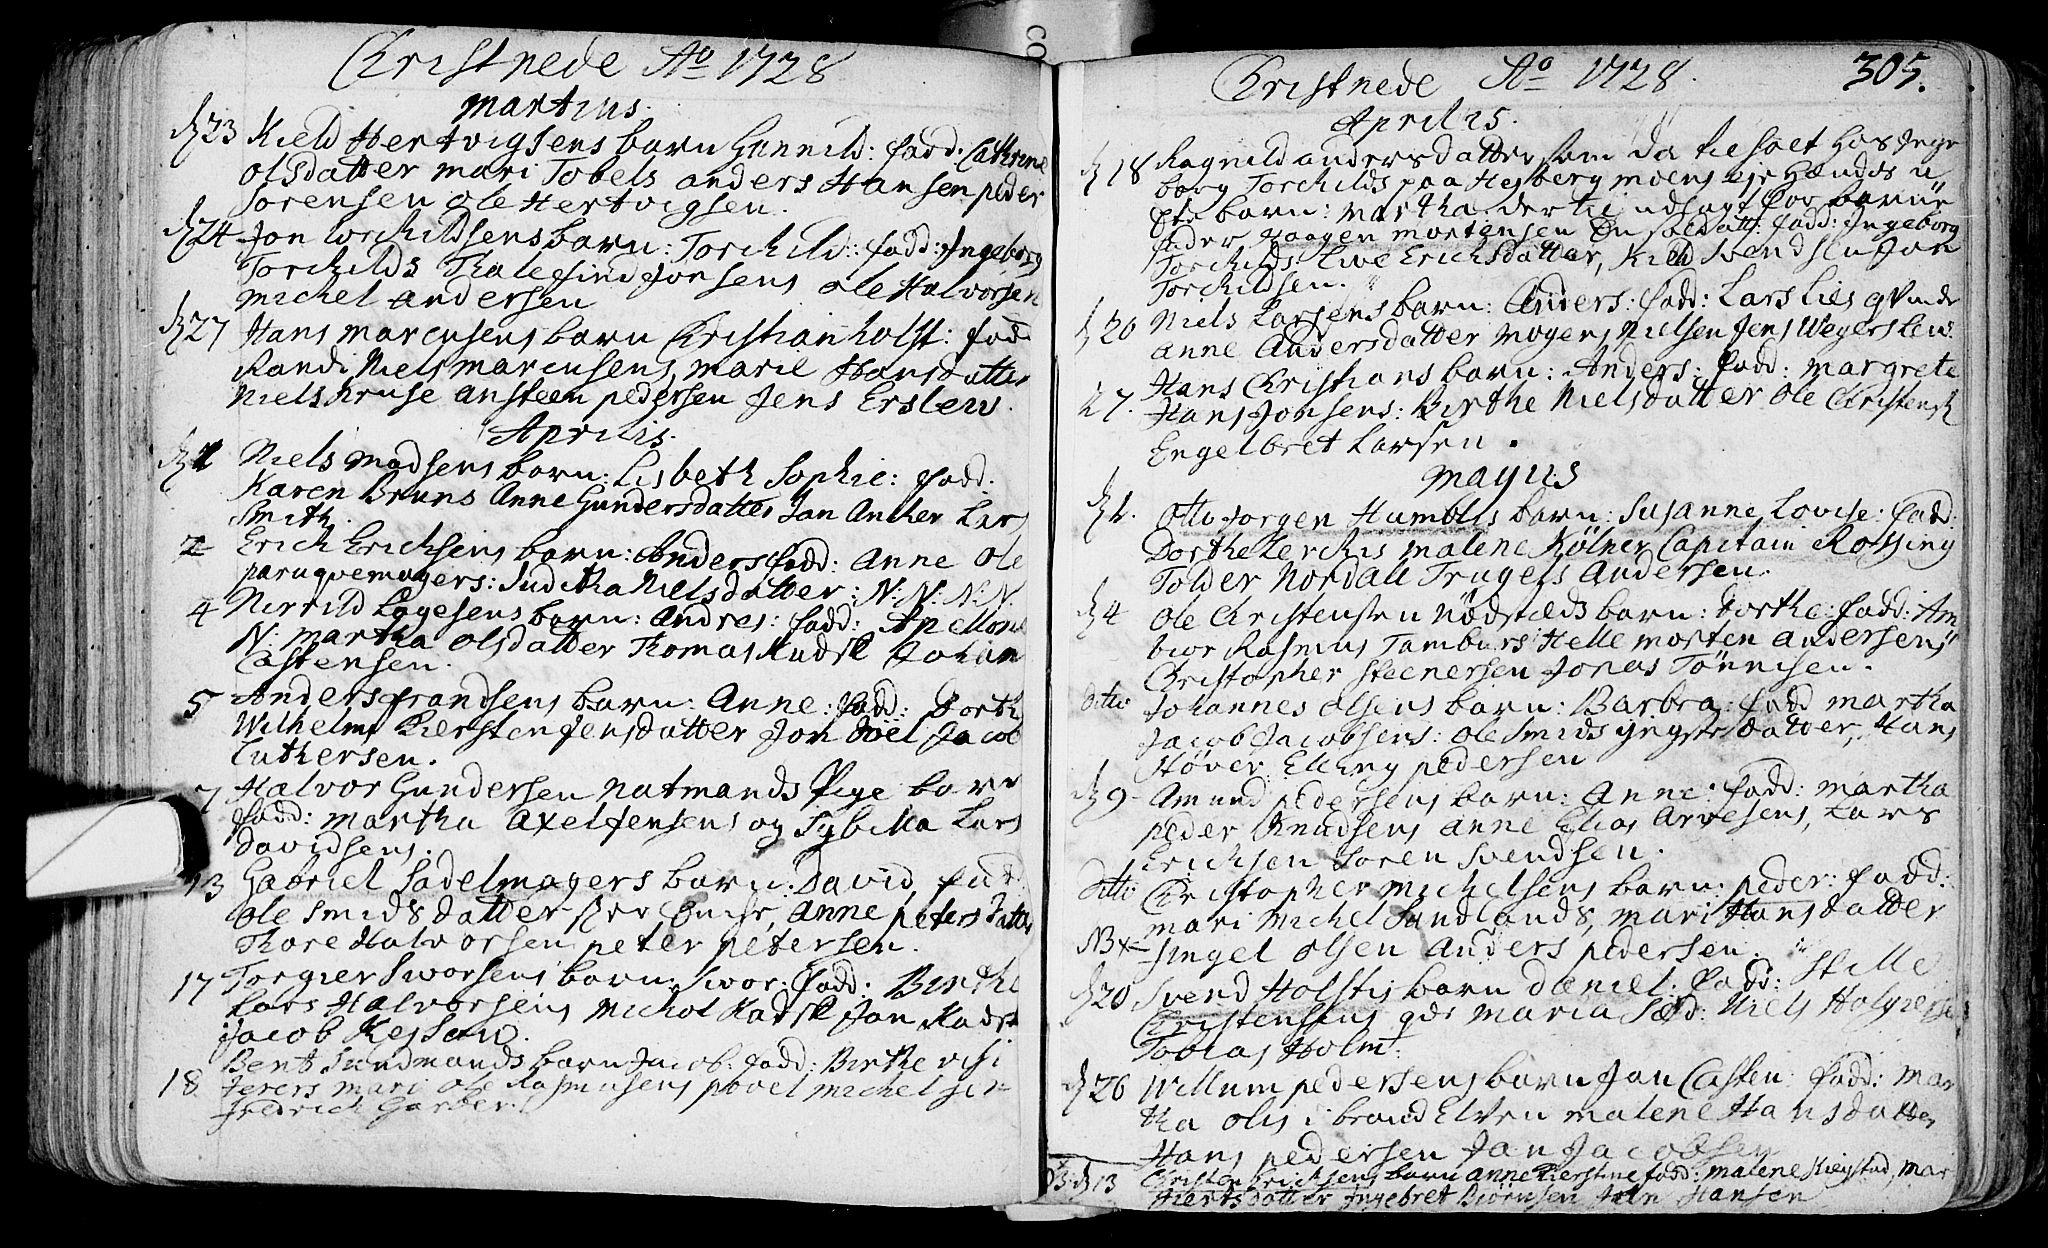 Christnede Ao 1728
Martius.
d 23 Kield Hertvigsens barn Gunnild: fadd. Cathrine
olsdatter mari Tobels anders Hansen peder
Sorensen ole Hertvigsen.
d 24 Jon torchildsens barn: Torchild: fadd: Ingeborg
Torchilds Jonsens ole Halvorsen
Michel andersen
d 27 Hans marcusens barn Christian holst: fadd
Randi Niels marcusens, marie Hansdatter
Niels Kruse ansteen pedersen Jens Erslew.
Aprilis.
d 1 Niels madsens barn: Lisbeth Sophie: fadd:
Karen Bruns Anne Gundersdatter Jan Ancher Lars
Smith.
2 Erich Erichsens barn: Anders fadd: Anne ole
paruqvemagers: Juditha Nielsdatter: N: N: N: N.
4 Lagesens barn: Andres: fadd: Apellone
N: martha olsdatter Thomas Kudsk Johan
Castensen.
5 Anders frandsens barn: Anne: fadd: Dorthe
Wilhelms Kiersten Jensdatter Jon Joel Jacob
Luthersen.
7 Halvor Gundersen natmands Pige barn
fadd: martha Axel Jensens og Sybilla Lars
Davidsens.
13 Gabriel Sadelmagers barn: David fad:
ole Smids datter, Anne peters datter
Thore Halvorsen peter petersen.
17 Torgier Iworsens barn: Iwor: fadd. Birthe
Lars Halvorsens Michel Kudsk Jan Kudsk
Jacob Kessow.
18 Bent Sundmands barn Jacob: fadd: Birthe visi
terers mari ole Rasmusens povel michelsen
fredrich Garber.
Christnede Ao 1728. 305.
Aprilis.
d 18 Ragnild andersdatter som da tilholt hos Inge
borg Torchilds paa Hesberg moens
Ete barn: martha. dertil udlagt for barne
fader Haagen mortensen En Soldatt: fadd: Ingeborg
Torchilds Live Erichsdatter, Kield Svendsen Jon
Torchildsen.
d 20 Niels Larsens barn: Anders: fadd: Lars Lies qvinde
Anne Andersdatter mogens Nielsen Jens Weyerslew.
27. Hans Christians barn: Anders: fadd: margrete
Hans Jobsens: Birthe Nielsdatter ole Christensen
Engelbret Larsen.
Mayus
d 1. Otto Jorgen Humbles barn: Susanne Lovise: fadd:
Dorthe Lerches malene Kölner Capitain Rossing
Tolder Nordall Trugels Andersen.
d 4 Ole Christensen Nödsteds barn: dorthe: fadd: Am
bior Rasmus Tamburs Helle morten andersens
Christopher steenersen Jonas Tönnisen.
Ditto Johannes olsens barn: Barbra: fadd martha
Jacob Jacobsens: ole Smids yngste datter, Hans
Stöver Elling pedersen
d 9 Amund pedersens barn: Anne: fadd: martha
peder Knudsens Anne Elias Arvesens, Lars
Erichsen Soren Svendsen.
Ditto Christopher, michelsens barn: peder: fadd:
mari michel Sundlands, mari Hansdatter
NB x Singel olsen Anders pedersen.
d 20 Svend Holstis barn daniel. fadd: Sidsell
Christensens qde Maria Sæd: Niels Holgiersen
Tobias Holm.
d 26 Willum pedersens barn Jan Casten: fadd: Mar
tha oles i brand Elven malene Hansdatter
Hans pedersen Jan Jacobsen
NB. d 13 Christen Erichsens barn anne Kierstine fadd: malene Kiegstad, mar
Hiertsdatter Ingebret Biörnsen John Hansen